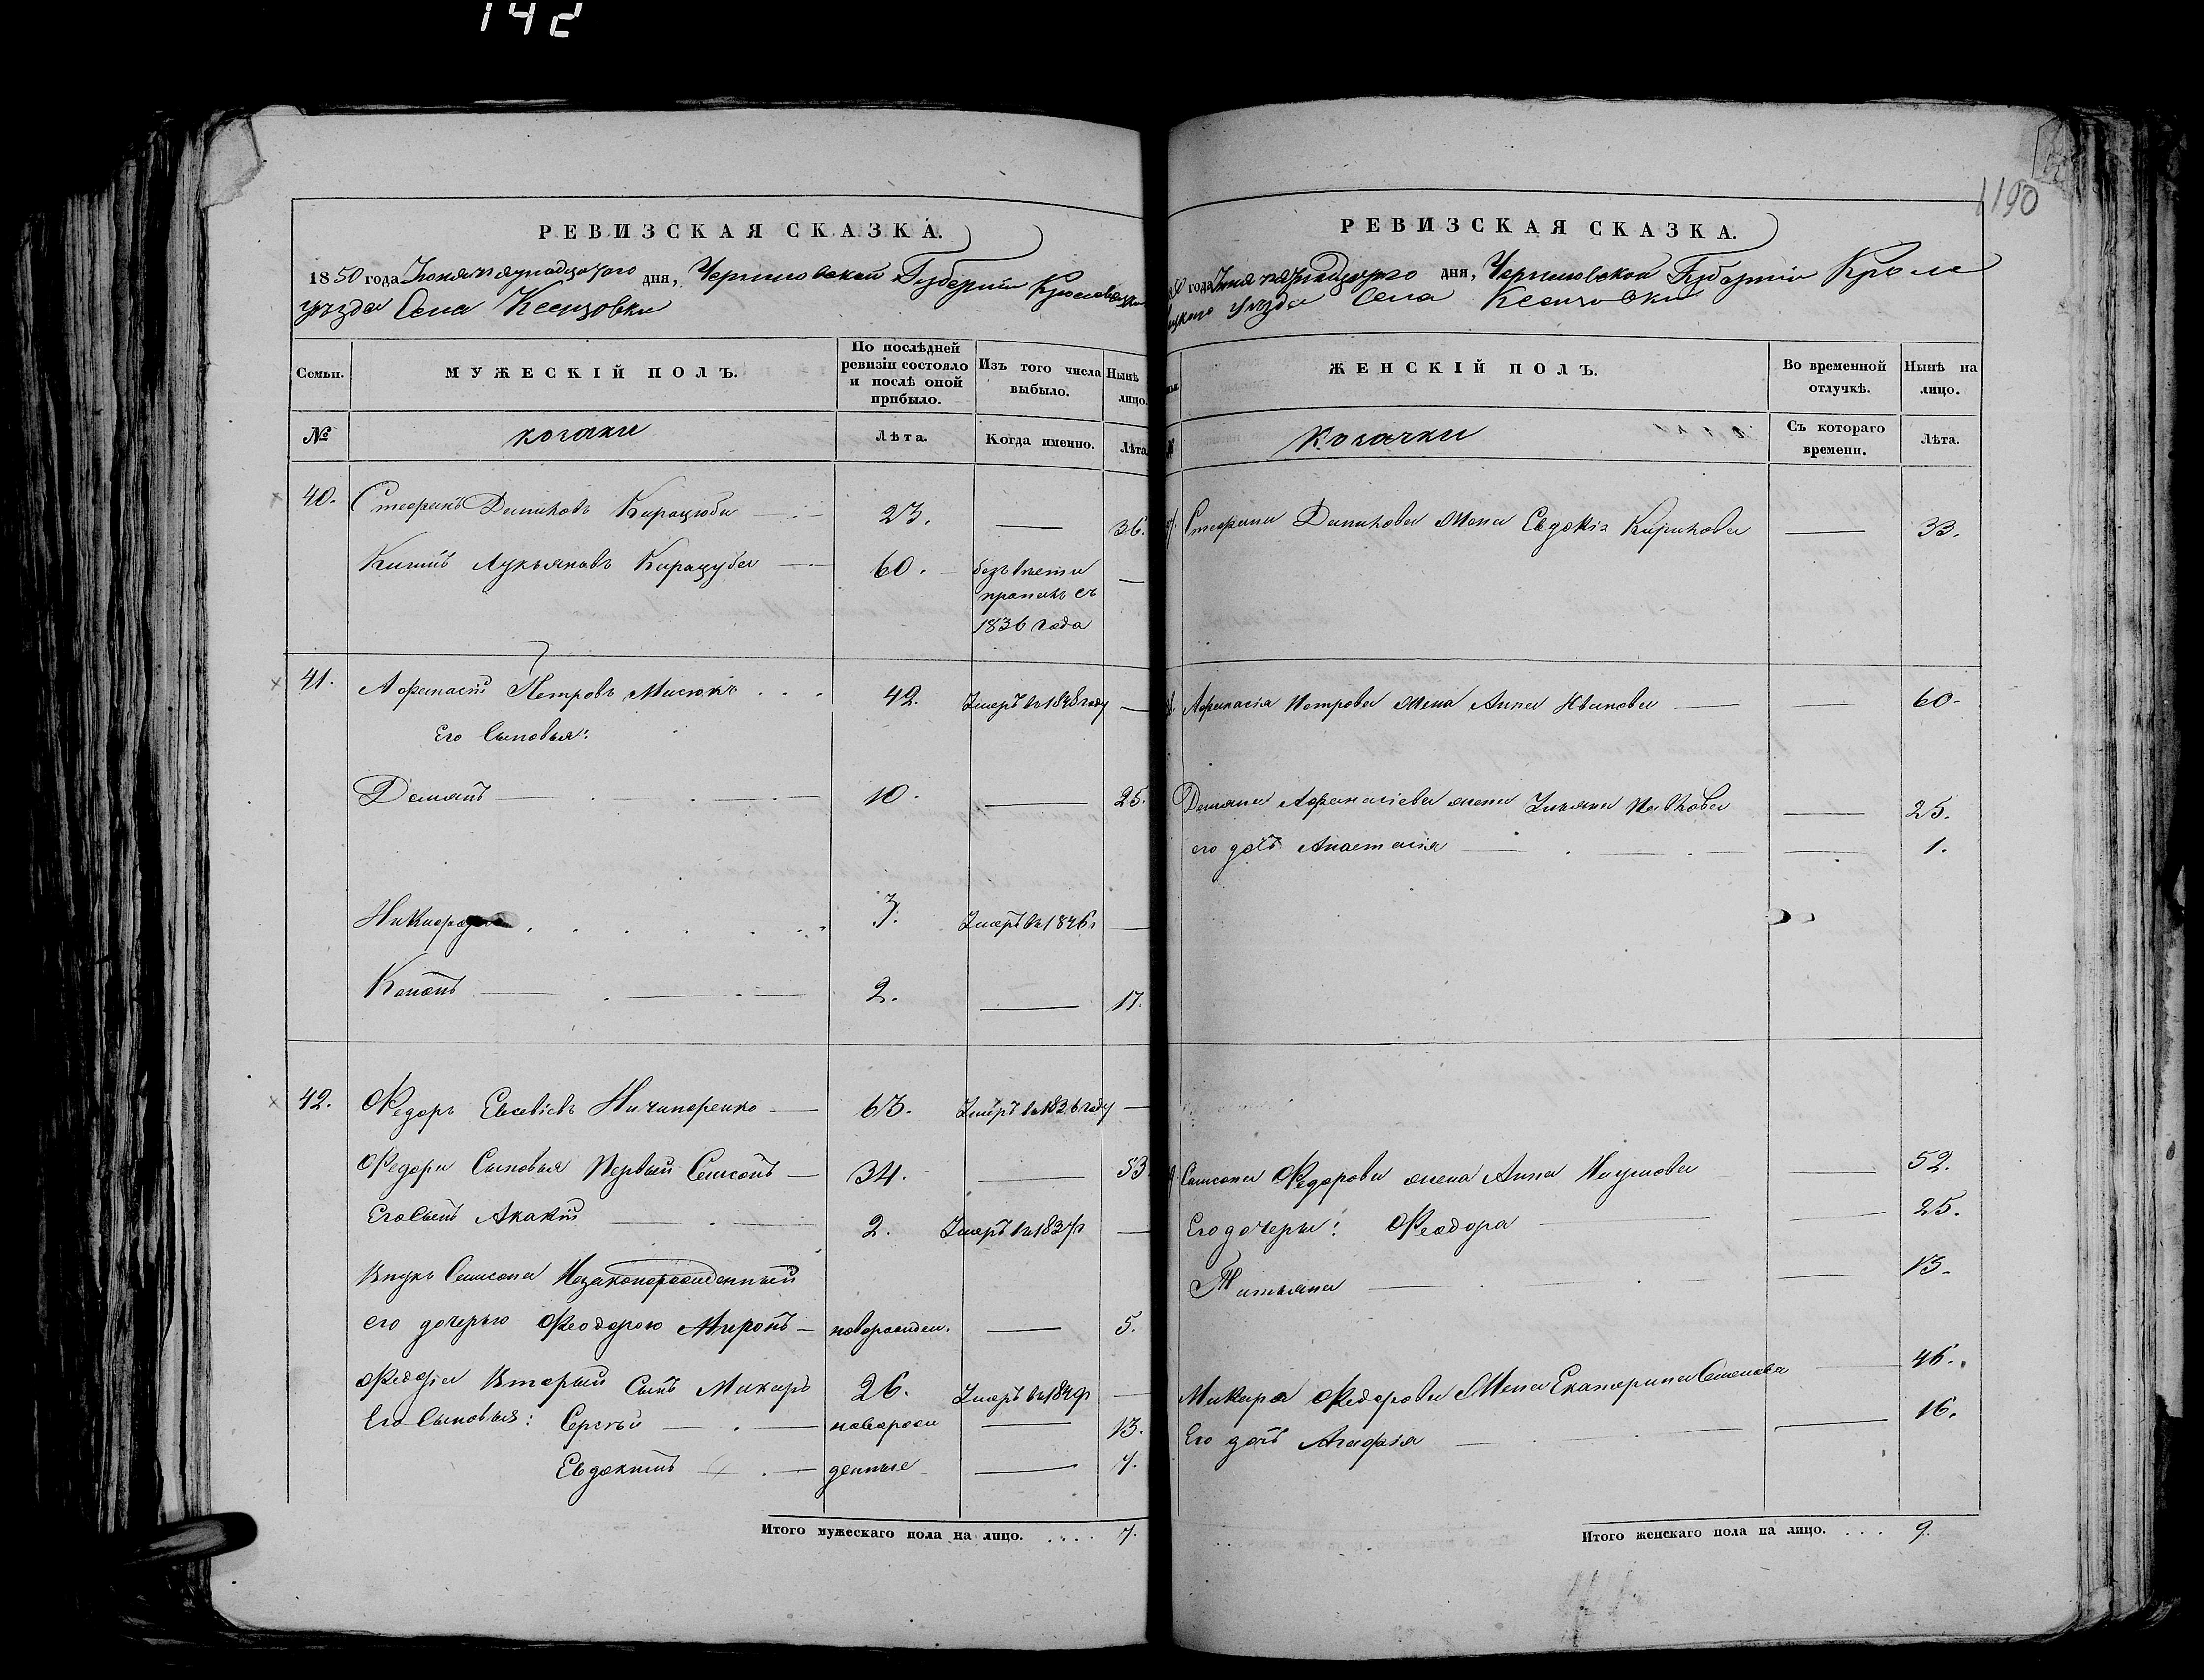 142
190
РЕВИЗСКАЯ СКАЗКА.
1850 года Іюня пятнадцатаго дня, Черниговской Губерніи Кролевецкаго
уѣзда Села Ксензовки
Семьи.
МУЖЕСКІЙ ПОЛЪ.
По послѣдней ревизіи состояло и послѣ оной прибыло.
Изъ того числа выбыло.
Нынѣ лицо.
№
козаки
Лѣта.
Когда именно.
Лѣта
40. Стефанъ Даниловъ Карацюба 23. — 36.
Китъ Лукьяновъ Карацуба 60. безъ вѣсти —
пропалъ съ
1836 года
41. Афанасій Петровъ Мисюкъ 42. Умеръ въ 1848 году —
Его Сыновья:
Демянъ 10. — 25.
Никифоръ 7. Умеръ въ 1846 г —
Кононъ 2. — 17.
42. Федоръ Евсевіевъ Ничипоренко 63. Умеръ въ 1836 году —
Федора Сыновья Первый Самсонъ 34. — 53
Его Сынъ Акакій 2. Умеръ въ 1837 г —
Внукъ Самсона Незаконорожденный
его дочерью Феодорою Миронъ новорожден. — 5.
Федора Вторый Сынъ Макаръ 26. Умеръ въ 1849 г —
Его Сыновья: Сергѣй новорож — 13.
Евдокимъ денные — 7.
Итого мужескаго пола на лицо. . . . . 7.
РЕВИЗСКАЯ СКАЗКА.
50 года Іюня пятнадцатаго дня, Черниговской Губерніи Кроле
вецкаго Уѣзда Села Ксензовки
ЖЕНСКІЙ ПОЛЪ.
Во временной отлучкѣ.
Нынѣ на лицо.
Козачки
Съ котораго времени.
Лѣта.
Стефана Данилова жена Евдокія Кирилова — 33.
Афанасія Петрова жена Анна Иванова — 60.
Демяна Афанасіева жена Ульяна Павлова — 25.
его дочь Анастасія — 1.
Самсона Федорова жена Анна Наумова — 52.
Его дочери: Феодора — 25.
Татьяна — 13.
Макара Федорова Жена Екатерина Семенова — 46.
Его дочь Агафія — 16.
Итого женскаго пола на лицо. . . . 9.